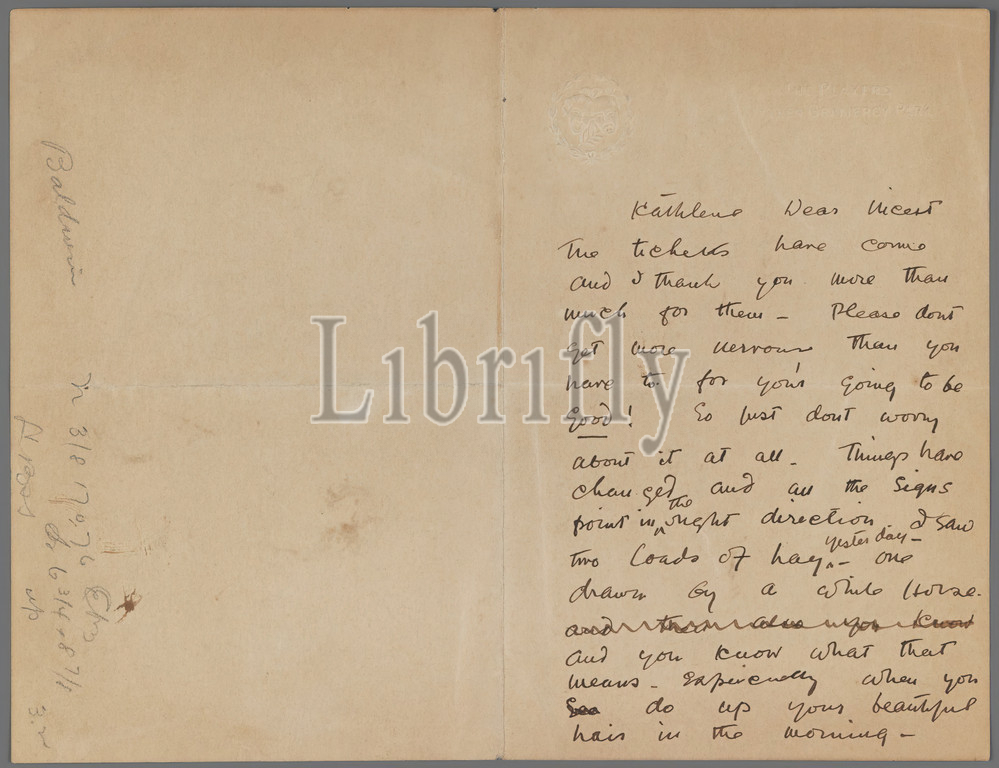 THE PLAYERS
GRAMERCY PARK
Kathlene Dear
The tickets have come
and I thank you more than
much for them – Please dont
get more nervous than you
have to for you's going to be
good! So just dont worry
about it at all – Things have
changed and all the signs
point in the right direction. I saw
two loads of hay yesterday – one
drawn by a white Horse.
and you know what that
means – Especially when you
do up your beautiful
hair in the morning –
Baldwin
Librifly